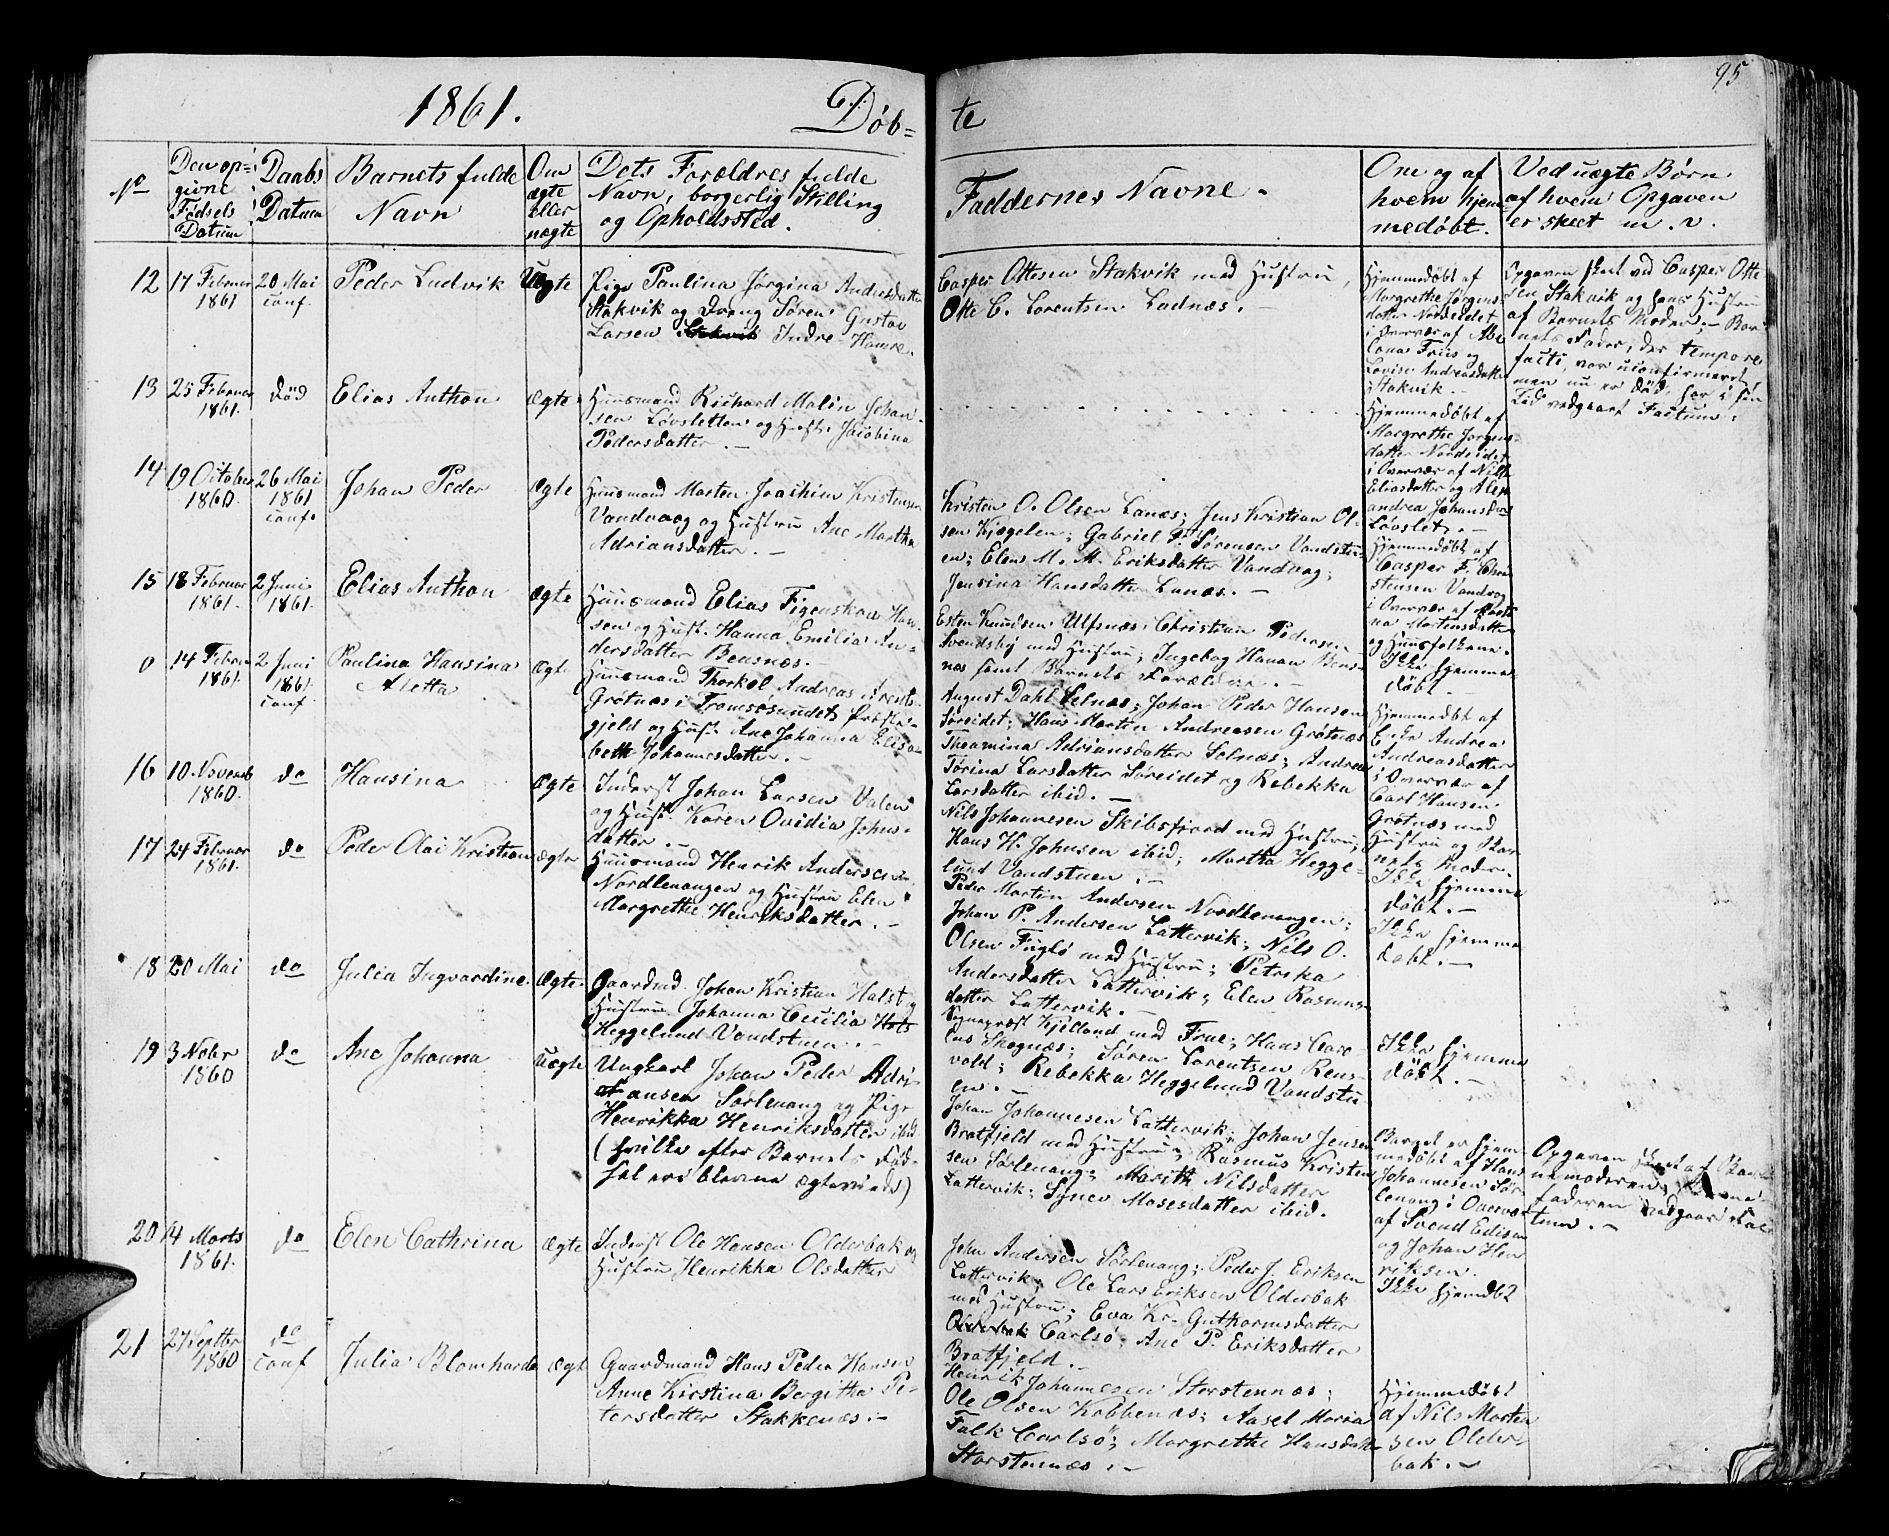 1861.
Døb=
te
95
No
Den op=
givne
Fødsels
Datum
Daabs
Datum
Barnets fulde
Navn
Om
ægte
eller
uægte
Dets Forældres fulde
Navn, borgerlig Stilling
og Opholdssted.
Faddernes Navne.
Om og af
hvem hjem
medøbt.
Ved uægte Børn
af hvem Opgaven
er skeet m. v.
12 17 Februar 20 Mai Peder Ludvik Uægte Pige Paulina Jørgina Andersdatter
1861 conf. Stakvik og Dreng Søren Gustav
Larsen Stakvik Indre Hamre.
Casper Ottesen Stakvik med Hustru,
Otte C. Lorentsen Ladnæs.
Hjemmedøbt af
Margrethe Jørgens-
datter Nordeidet
i Overvær af Abe
lona Friis og
Lovise Andreasdatter
Stakvik.
Opgaven skeet ved Casper Otte
sen Stakvik og hans Hustru
af Barnets Moder. Bar
nets Fader, der tempore
facti, var uconfirmeret,
men nu er død, har i sin
Tid vedgaaet Factum.
13 25 Februar død Elias Anthon Ægte Huusmand Richard Malin Johan
1861. sen Løvsletten og Hustr. Jacobina
Pedersdatter.
Hjemmedøbt af
Margrethe Jørgens-
datter Nordeidet
i Overvær af Nille
Eliasdatter og Alex
andrea Johansdatter
Løvslet.
14 19 October 26 Mai Johan Peder Ægte Huusmand Morten Joachim Kristensen
1860. 1861 Vandvaag og Hustru Ane Martha
conf. Adriansdatter.
Kristen O. Olsen Lanæs; Jens Kristian Ol-
sen Kjægelen; Gabriel P. Sørensen Vandstu-
en; Elen M. M. Eriksdatter Vandvog;
Jensina Hansdatter Lanæs.
Hjemmedøbt af
Casper F. Chri
stensen Vandvog
i Overvær af
na Martinsdatter
og Huusfolkene.
15 18 Februar 2 Juni Elias Anthon Ægte Huusmand Elias Figenskau Han
1861. 1861. sen og Hust. Hanna Emilia An-
dersdatter Bensnæs.
Esten Knudsen Ulfsnæs; Christian Pedersen
Svendsby med Hustru; Ingebog Hanna Bens
næs samt Barnets Forældre.
Ikke hjemme
døbt.
0 14 Februar 2 Juni Paulina Hansina Ægte Huusmand Thorkel Andreas Arents
1861. 1861. Aletta Grøtnæs i Tromsøsundets Præste-
conf. gjeld og Hust. Ane Johanna Elisa-
beth Johannesdatter.
August Dahl Selnæs; Johan Peder Hansen
Søreidet; Hans Martin Andreasen Grøtnæs
Theamina Adriansdatter Selnæs; Andrea
Tørina Larsdatter Søreidet og Rebekka
Larsdatter ibid.
Hjemmedøbt af
Enke Andrea
Andreasdatter
i Overvær af
Carl Hansen
Grøtnæs med
Hustru og Bar
nets Moder.
16 10 Novemb do Hansina Ægte Inderst Johan Larsen Valen
1860. og Hust. Karen Ovidia Johns-
datter.
Nils Johannesen Skibsfjord med Hustru;
Hans H. Johnsen ibid; Martha Hegge-
lund Vandstuen.
Ikke hjemme
døbt.
17 24 Februar do Peder Olai Kristian Ægte Huusmand Henrik Andersen
1861. Nordlenangen og Hustru Elen
Margrethe Henriksdatter.
Peder Martin Andersen Nordlenangen;
Johan P. Andersen Lattervik; Nils O.
Olsen Fuglø med Hustru; Petrika
Andersdatter Lattervik; Elen Rasmus-
datter Lattervik.
Ikke hjemme
døbt.
18 20 Mai do Julia Ingvardine Ægte Gaardmd. Johan Kristian Halst
Hustru Johanna Cecilia
Heggelund Vandstuen.
Sognepræst Kjelland med Frue; Hans Caro
lus Skognæs; Søren Lorentsen Rens-
vold; Rebekka Heggelund Vandstu
en.
Ikke hjemme
døbt.
19 3 Nobr do Ane Johanna Uægte Ungkarl Johan Peder Adri
1860 ansen Sørlenang og Pige
Henrikka Henriksdatter ibid
(hvilke efter Barnets Fød-
sel ere blevne ægteviede)
Johan Johannesen Lattervik; Johan Jensen
Bratfjeld med Hustru; Rasmus Kristen
sen Sørlenang; Marith Nilsdatter
Lattervik; Synev Mosesdatter ibid.
Barnet er hjem
medøbt af Hans
Johannesen Sør
lenang i Overvær
af Svend Edisen
og Johan Hen
riksen.
Opgaven skeet af Barnets
nemoderen;
faderen vedgaar Fac
tum.
20 14 Marts do Elen Cathrina Ægte Inderst Ole Hansen Olderbak og
1861. Hustru Henrikka Olsdatter
John Andersen Sørlenang; Peder J. Eriksen
Lattervik; Ole Lars Eriksen Olderbak
med Hustru; Eva Kr. Guthormsdatter
Olderbak Carlsø; Ane P. Eriksdatter
Bratfjeld.
Ikke hjemdøbt
21 27 Septbr do Julia Blomharda Ægt Gaardmand Hans Peder Hansen
1860 conf Anne Kirstina Bergitha Pe-
tersdatter Stakkenæs.
Henrik Johannesen Storstennæs;
Ole Olsen Kobbenæs; Aasel Maria
Falk Carlsø; Margrethe Hansdatter
Storstennæs.
Hjemmedøbt
af Nils Morten
sen Older-
bak.